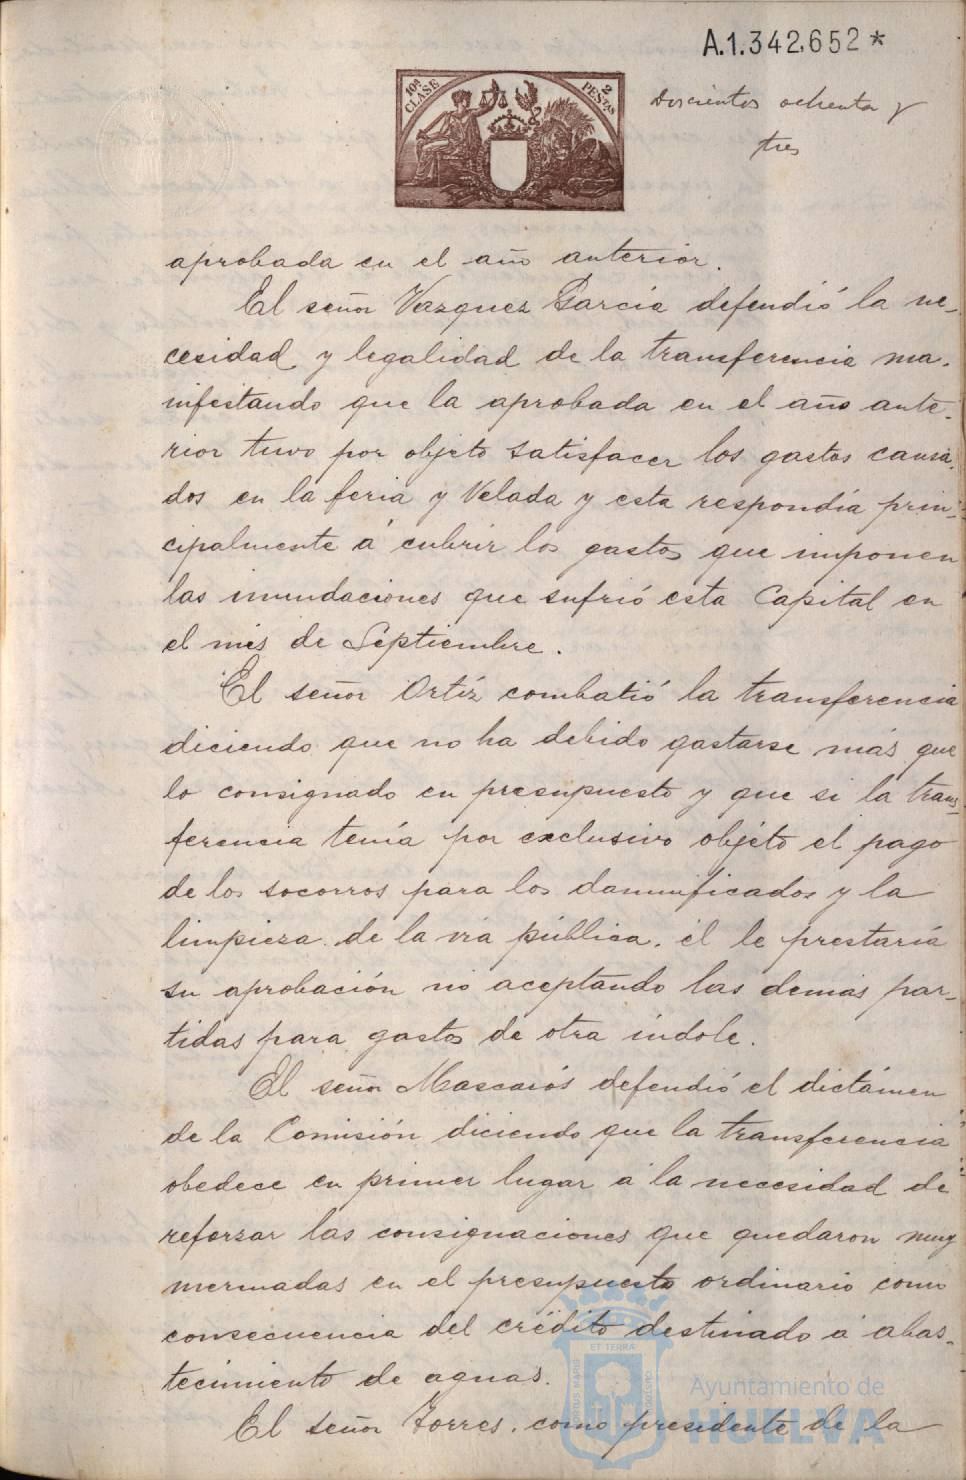 A.1.342,652*
10ª CLASE
2 PESTAS
Doscientos ochenta y
tres
aprobada en el año anterior.
El señor Vazquez Garcia defendió la ne-
cesidad y legalidad de la transferencia ma-
nifestando que la aprobada en el año ante-
rior tuvo por objeto satisfacer los gastos causa-
dos en la feria y Velada y esta respondía prin-
cipalmente á cubrir los gastos que imponen
las inundaciones que sufrió esta Capital en
el mes de Septiembre.
El señor Ortíz combatió la transferencia
diciendo que no ha debido gastarse más que
lo consignado en presupuesto y que si la trans-
ferencia tenía por exclusivo objeto el pago
de los socorros para los damnificados y la
limpieza de la vía pública, él le prestaría
su aprobación no aceptando las demás par-
tidas para gastos de otra índole.
El señor Mascarós defendió el dictámen
de la Comisión diciendo que la transferencia
obedece en primer lugar á la necesidad de
reforzar las consignaciones que quedaron muy
mermadas en el presupuesto ordinario como
consecuencia del crédito destinado á abas-
tecimiento de aguas.
El señor Torres, como presidente de la
ET TERRÆ
PORTUS MARIS
CUSTODIA
Ayuntamiento de
HUELVA